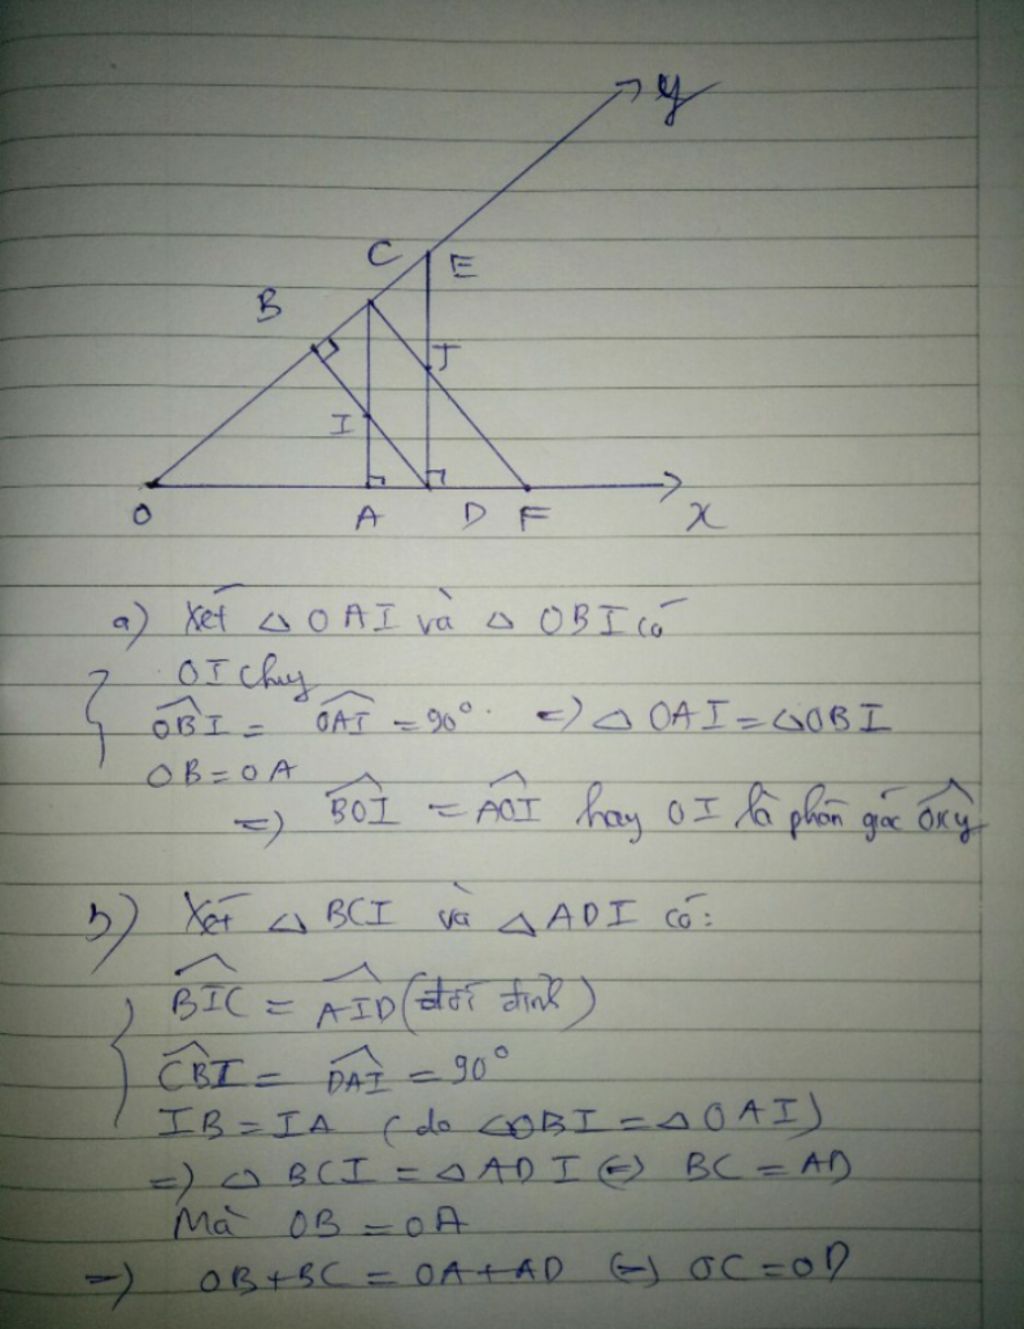 y
C E
B
J
I
O A D F x
a) Xét △ OAI và △ OBI có
OI chung
OBI = OAI = 90° => △ OAI = △OBI
OB = OA
=> BOI = AOI hay OI là phân giác OKy
b) Xét △ BCI và △ ADI có:
BIC = AID (đối đỉnh)
CBI = DAI = 90°
IB = IA (do △OBI = △OAI)
=> △ BCI = △ADI (=) BC = AD
Mà OB = OA
=> OB+BC = OA+AD (=) OC = OD